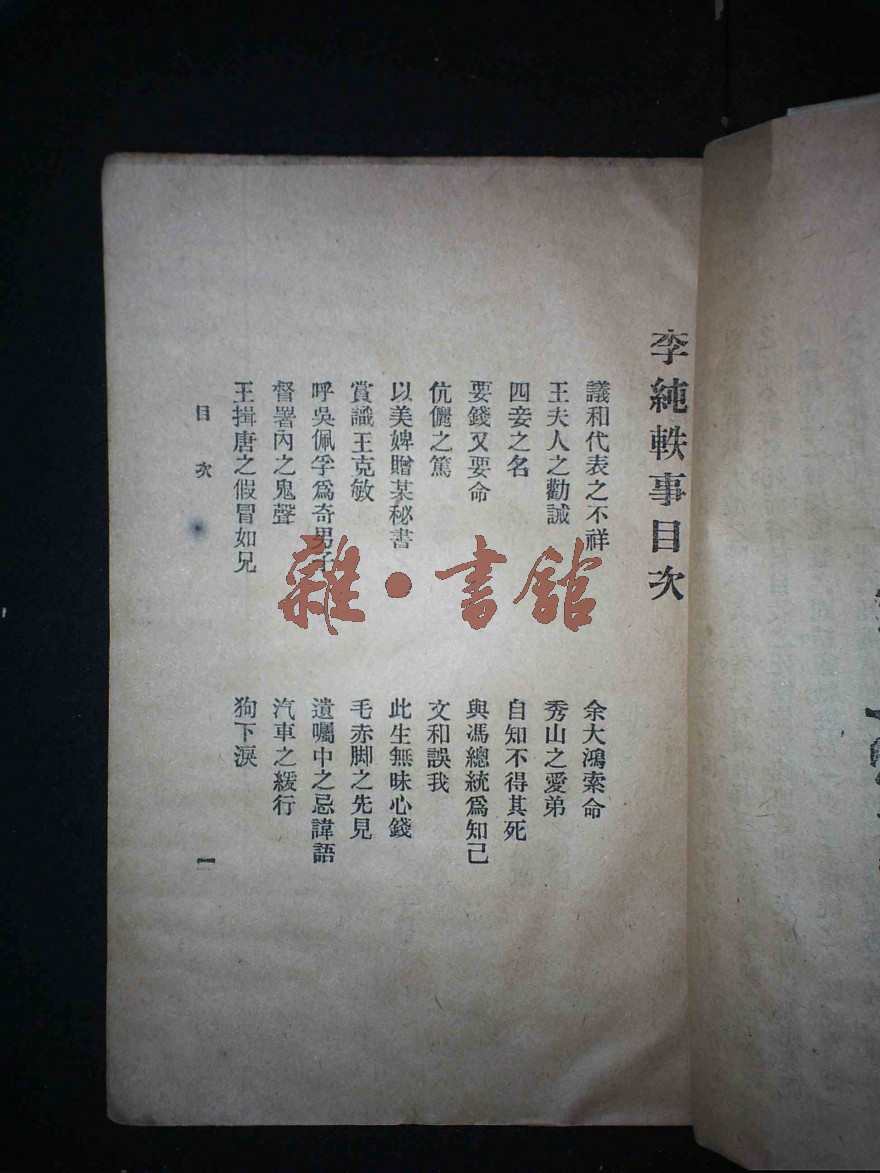 李純軼事目次
議和代表之不祥
余大鴻索命
王夫人之勸誡
秀山之愛弟
四妾之名
自知不得其死
要錢又要命
與馮總統爲知己
伉儷之篤
文和誤我
以美婢贈某秘書
此生無昧心錢
賞識王克敏
毛赤脚之先見
呼吳佩孚爲奇男子
遺囑中之忌諱語
督署內之鬼聲
汽車之緩行
王揖唐之假冒如兄
狗下淚
目次
一
雜·書館